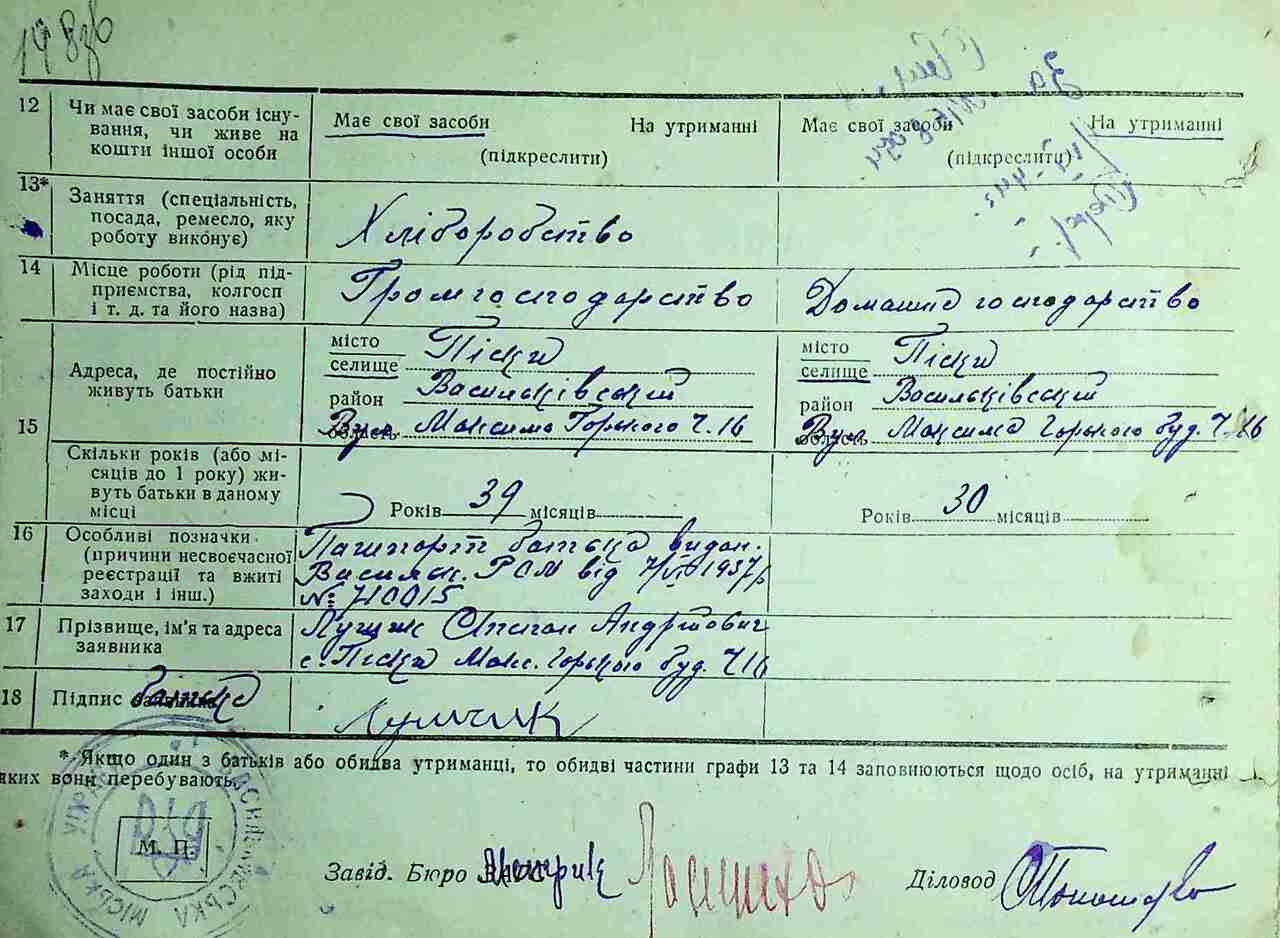 12 Чи має свої засоби існу-
вання, чи живе на
кошти іншої особи
Має свої засоби На утриманні
(підкреслити)
Має свої засоби На утриманні
(підкреслити)
13* Заняття (спеціальність,
посада, ремесло, яку
роботу виконує)
Хліборобство
14 Місце роботи (рід під-
приємства, колгосп
і т. д. та його назва)
Громгосподарство
Домашнє господарство
15 Адреса, де постійно
живуть батьки
місто
селище Піски
район Васильківський
область Вул. Максима Горького Ч. 16
місто
селище Піски
район Васильківський
область Вул. Максима Горького буд. Ч. 16
Скільки років (або мі-
сяців до 1 року) жи-
вуть батьки в даному
місці
Років 39 місяців
Років 30 місяців
16 Особливі позначки
(причини несвоєчасної
реєстрації та вжиті
заходи і інш.)
Пашпорт батька видан.
Васильк. РСМ від 7/VI 1937р
№ 710015
17 Прізвище, ім'я та адреса
заявника
Андрійович
с. Піски Макс. Горького буд. Ч 16
18 Підпис батька
* Якщо один з батьків або обидва утриманці, то обидві частини графи 13 та 14 заповнюються щодо осіб, на утриманні
яких вони перебувають.
М. П.
МІСЬКА
Завід. Бюро метрик
Діловод